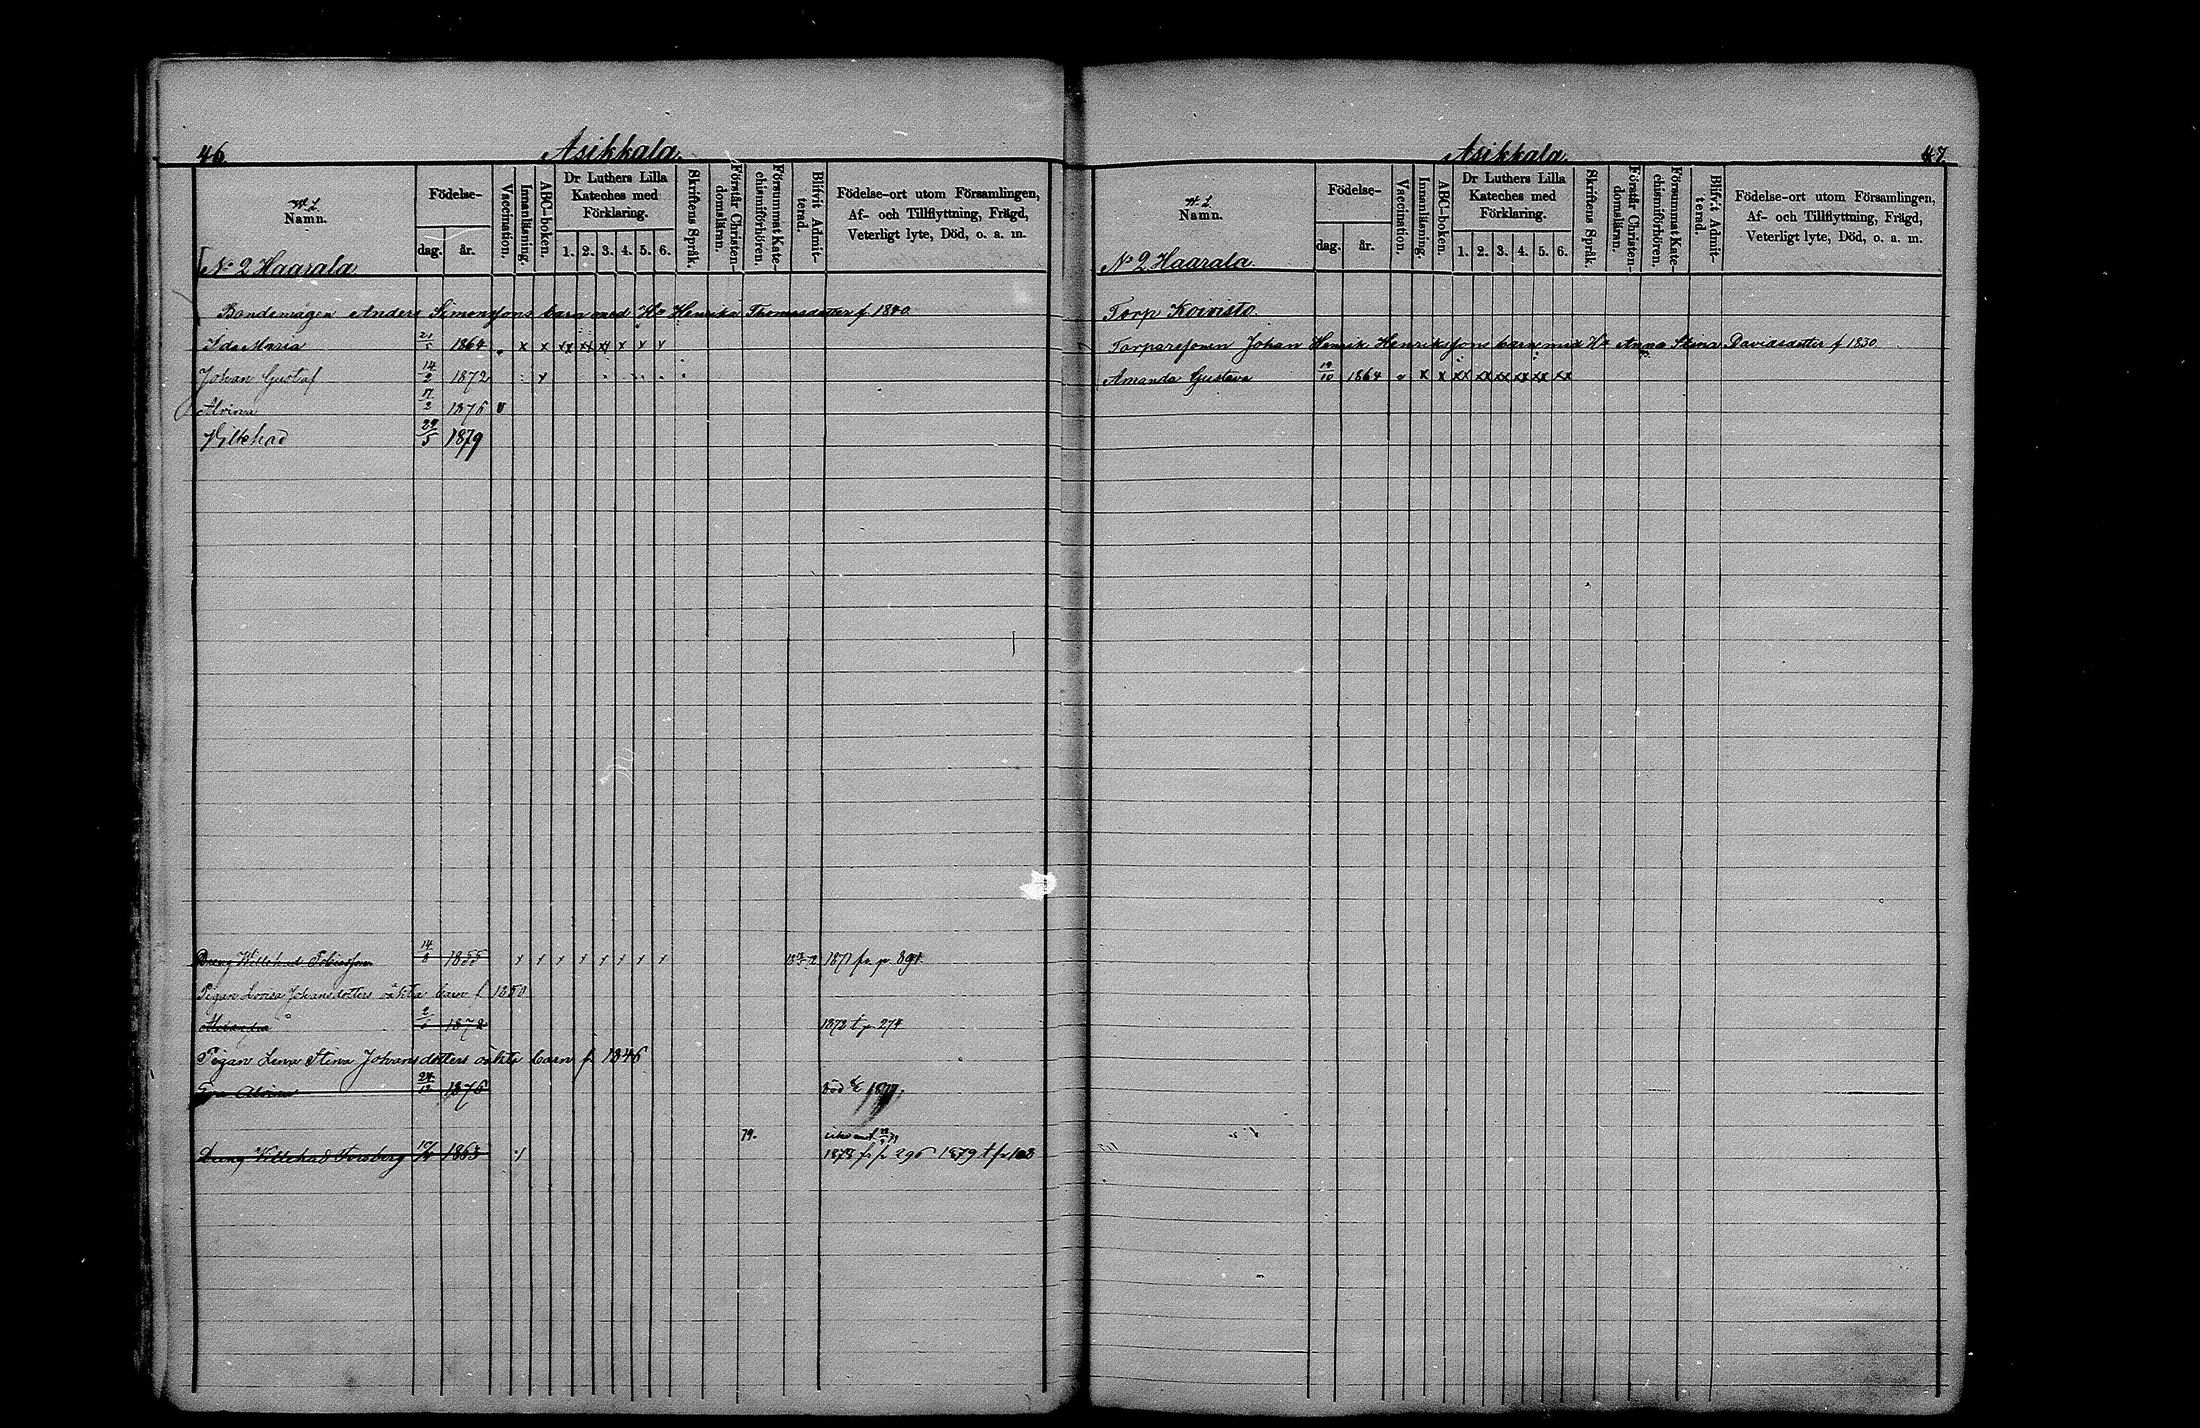 46. Asikkala.
Namn.
Födelse-
dag. år.
Vaccination.
Innanläsning.
ABC-boken.
Dr Luthers Lilla Kateches med Förklaring.
1. 2. 3. 4. 5. 6.
Skriftens Språk.
Förstår Christendomsläran.
Försummat Katechismiförhören.
Blifvit Admitterad.
Födelse-ort utom Församlingen,
Af- och Tillflyttning, Frägd,
Veterligt lyte, Död, o. a. m.
No 2 Haarala
Bondemågen Anders Simonssons barn med Ha Henrika Thomasdotter f. 1840.
Ida Maria 1864 x x xx xx xx x x x
Johan Gustaf 14/2 1872
Alvina 1876 v
Villehad 29/5 1879
Dreng Willehad Tobiasson 14/8 1855 1871 fr p 891
Pigan Lovisa Johansdotters oäkta barn f. 1850
1872 1873 t p 274
Pigan Lena Stina Johansdotters oäkta barn f. 1846
Eva Alvina 24/12 1876 död 1877.
79.
Dreng Willehad Forsberg 1863 1878 fr p 296 1879 t p 108
Asikkala. 47.
Namn.
Födelse-
dag. år.
Vaccination.
Innanläsning.
ABC-boken.
Dr Luthers Lilla Kateches med Förklaring.
1. 2. 3. 4. 5. 6.
Skriftens Språk.
Förstår Christendomsläran.
Försummat Katechismiförhören.
Blifvit Admitterad.
Födelse-ort utom Församlingen,
Af- och Tillflyttning, Frägd,
Veterligt lyte, Död, o. a. m.
No 2 Haarala.
Torp Koivisto
Torparesonen Johan Henrik Henrikssons barn med Ha Anna Stina Davidsdotter f 1830
Amanda Gustava 19/10 1864 x x xx xx xx xx xx xx